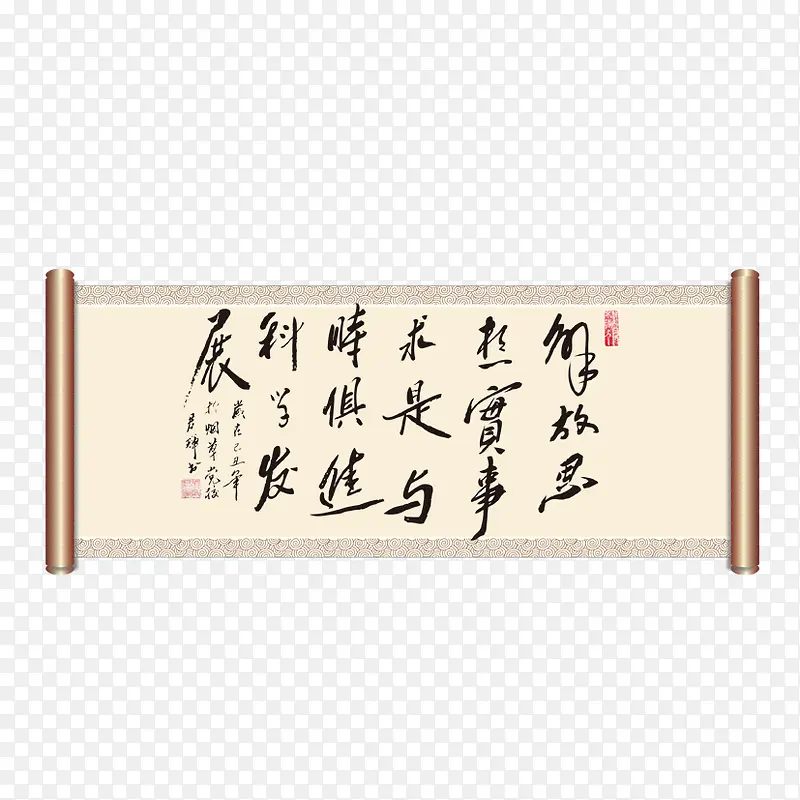 解放思
想實事
求是与
時俱進
科学发
展
歲在己丑年
於烟草党校
书